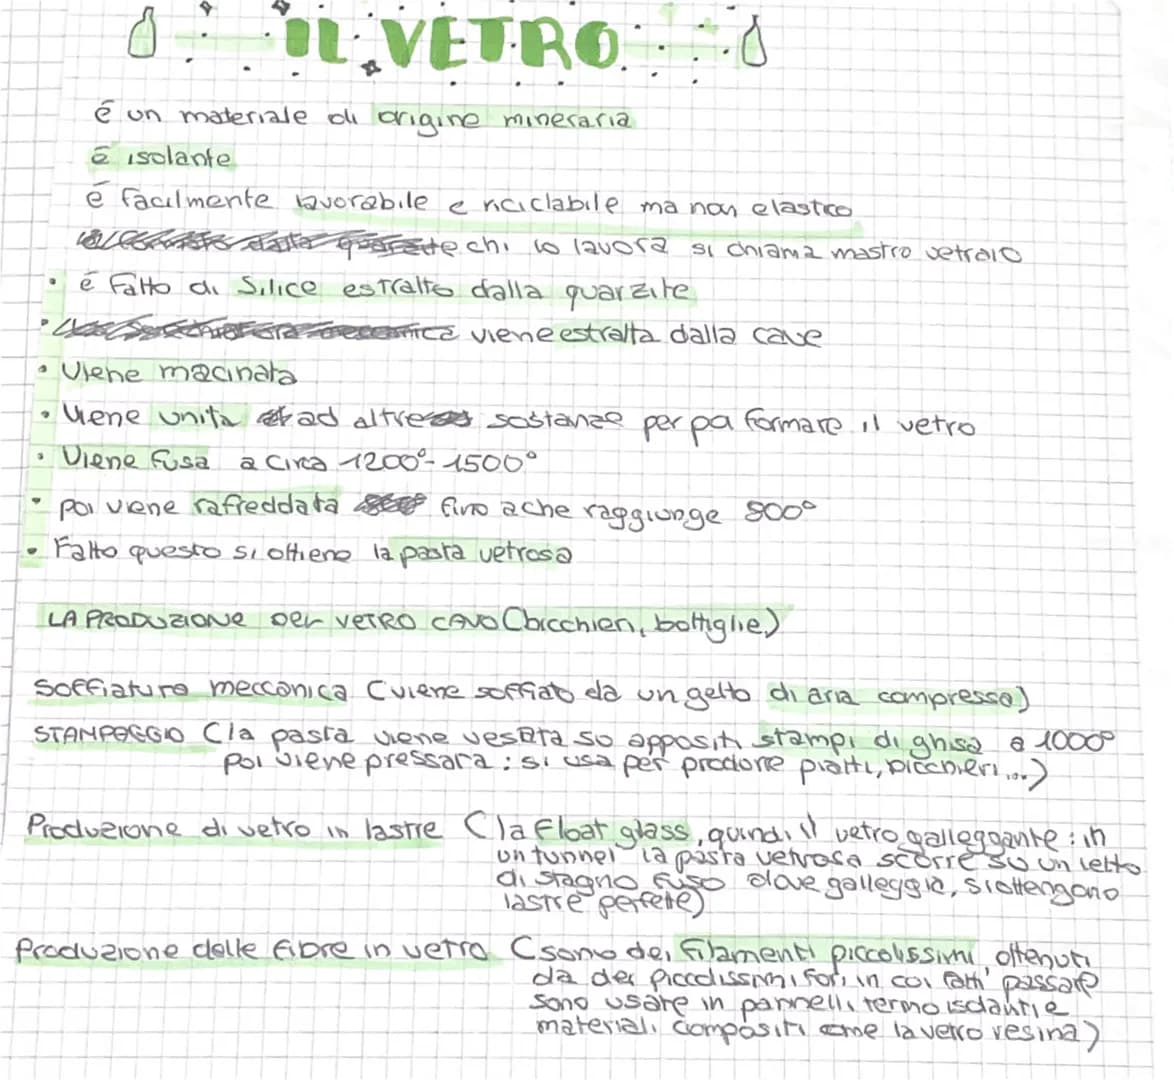 IL VETRO
é un materiale di origine mineraria
é isolante
é facilmente lavorabile e riciclabile ma non elastico
chi lo lavora si chiama mastro vetraio
• é fatto di Silice estratto dalla quarzite
• viene estratta dalla cave
• Viene macinata
• Viene unita ad altre sostanze per pa formare il vetro
• Viene fusa a circa 1200°-1500°
• poi viene rafreddata fino ache raggiunge 900°
• Fatto questo si ottiene la pasta vetrosa
LA PRODUZIONE DEL VETRO CAVO (bicchieri, bottiglie)
Soffiatura meccanica (viene soffiato da un getto di aria compressa)
STAMPAGGIO (la pasta viene versata su appositi stampi di ghisa a 1000°
poi viene pressara : si usa per produrre piatti, bicchieri ...)
Produzione di vetro in lastre (la float glass, quindi il vetro galleggante : in
un tunnel la pasta vetrosa scorre su un letto
di stagno fuso dove galleggia, si ottengono
lastre perfette)
Produzione delle fibre in vetro (sono dei filamenti piccolissimi ottenuti
da dei piccolissimi fori in cui fatti passare
sono usate in pannelli termo isolanti e
materiali compositi come la vetro resina)